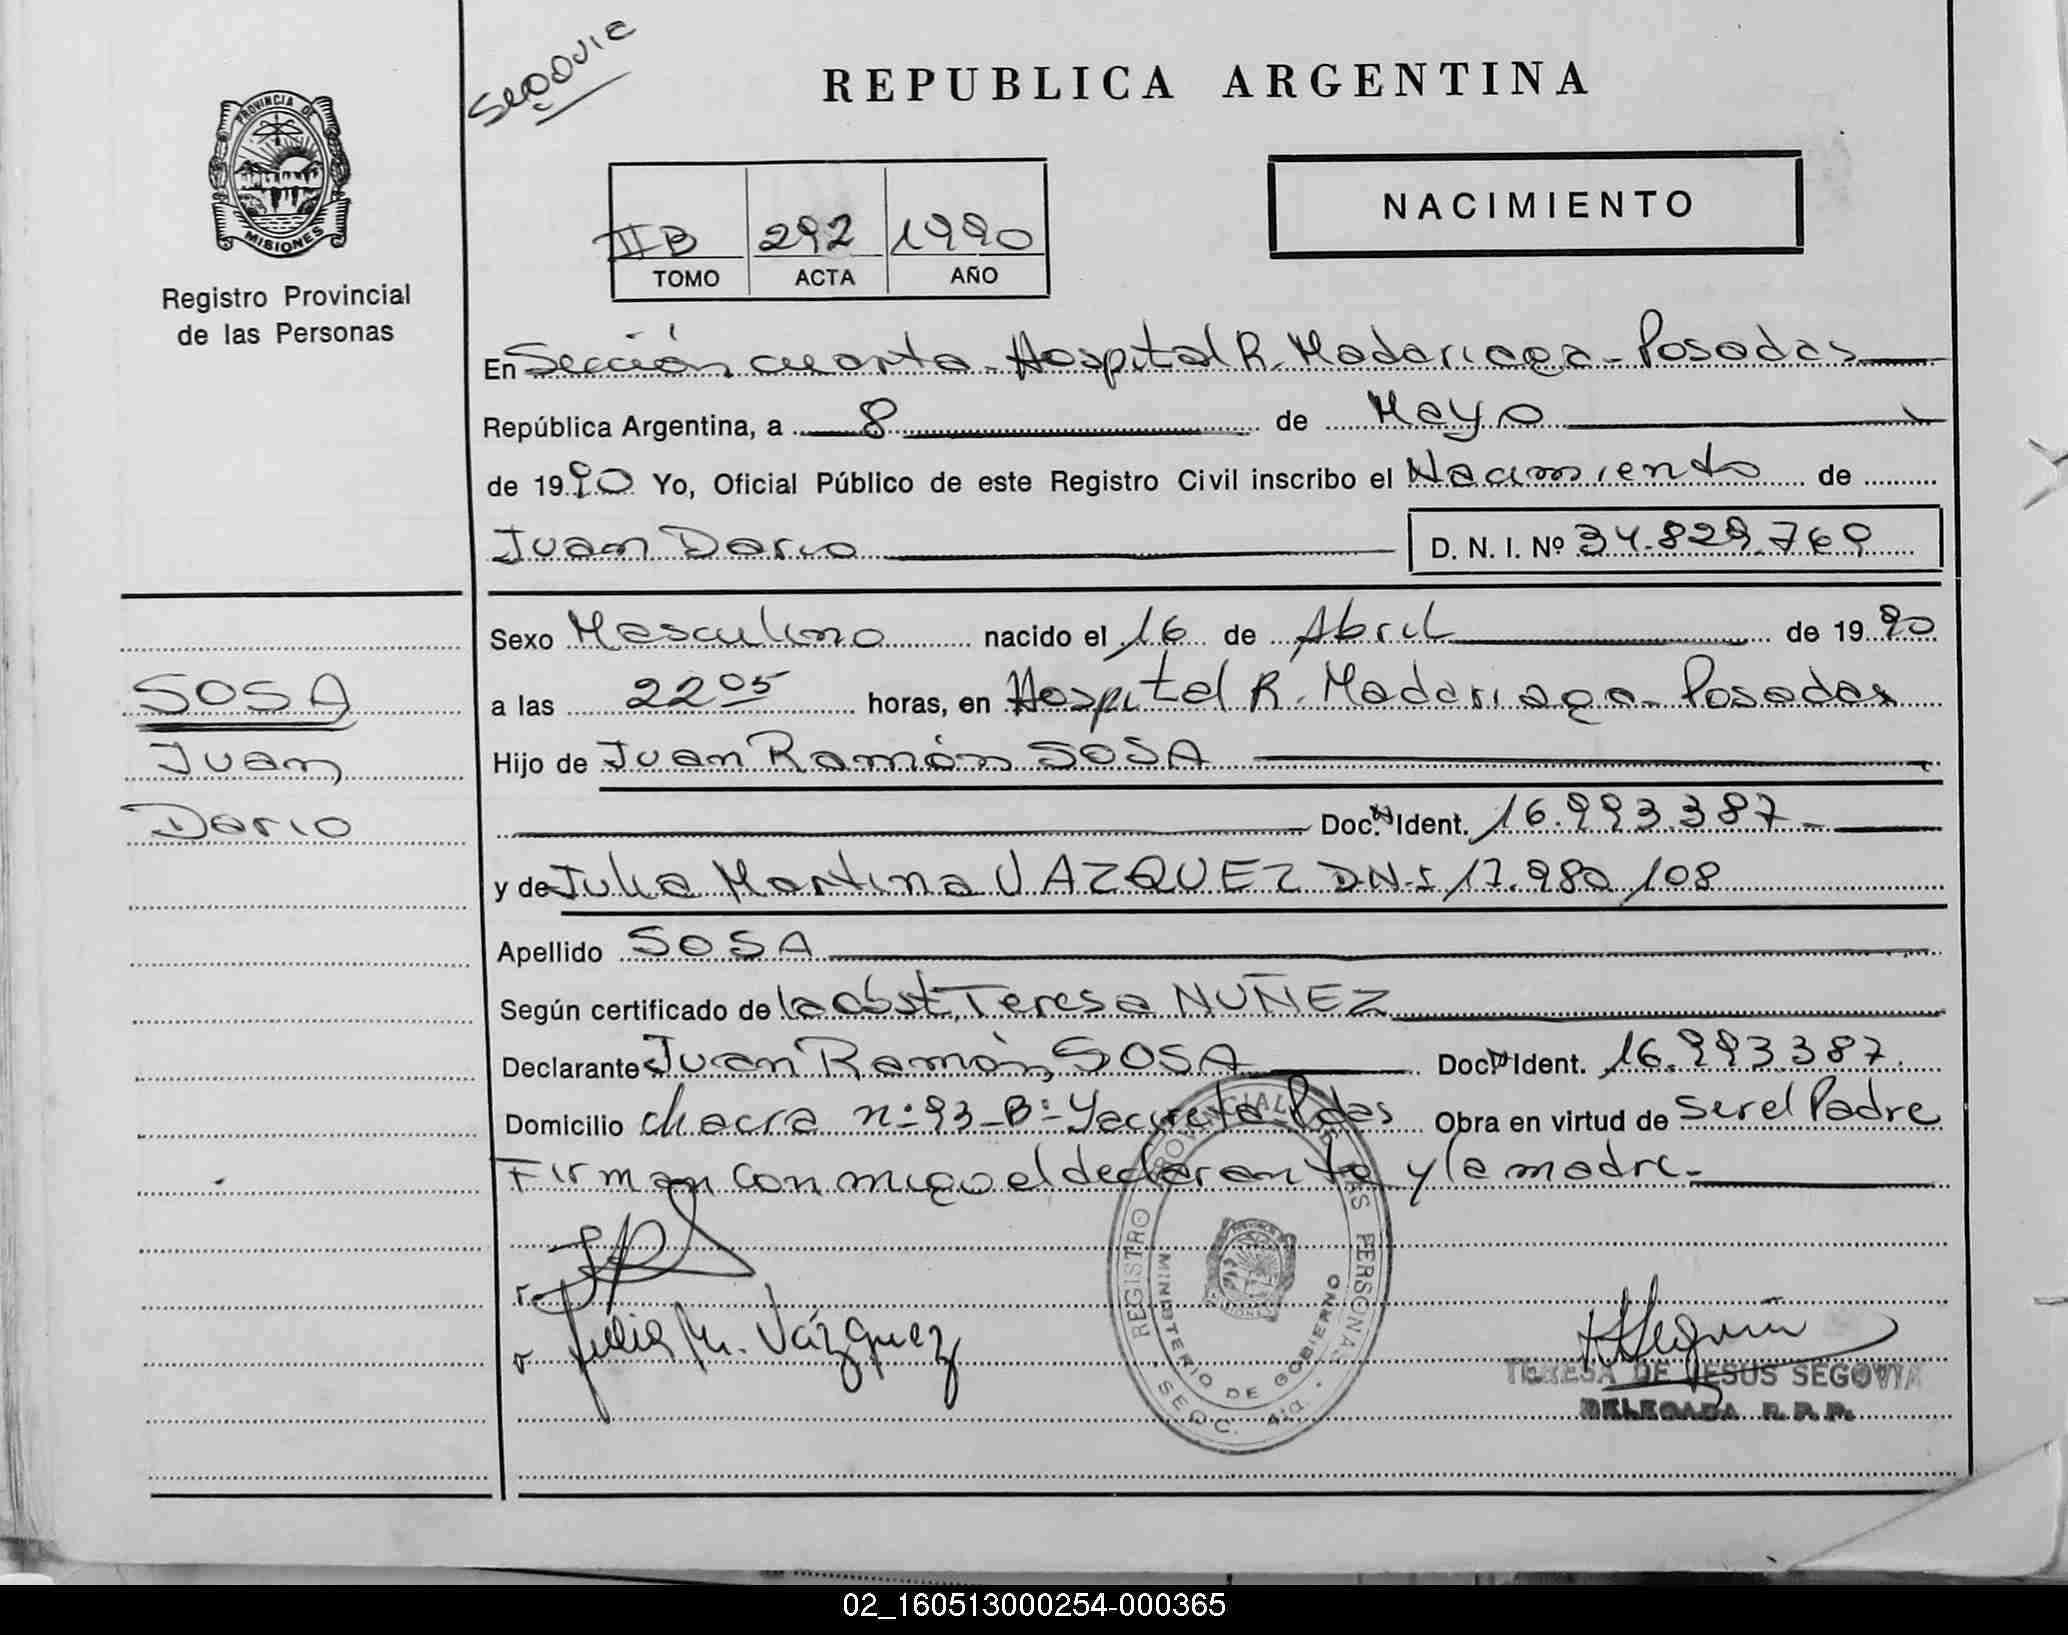 Segovie
REPUBLICA ARGENTINA
PROVINCIA DE
MISIONES
Registro Provincial
de las Personas
NACIMIENTO
II B 292 1990
TOMO ACTA AÑO
En Sección cuarta - Hospital R. Madariaga - Posadas
República Argentina, a 8 de Mayo
de 1990 Yo, Oficial Público de este Registro Civil inscribo el Nacimiento de
Juan Dario D. N. I. Nº 34.829.769
Sexo Masculino nacido el 16 de Abril de 1990
SOSA
Juan
Dario
a las 22 05 horas, en Hospital R. Madariaga - Posadas
Hijo de Juan Ramón SOSA
Doc. N Ident. 16.993.387
y de Julia Martina VAZQUEZ DNI 17.980.108
Apellido SOSA
Según certificado de la obst. Teresa NUÑEZ
Declarante Juan Ramón SOSA Doc. N Ident. 16.993.387.
Domicilio chacra nº 93 - Bº Yacireta Pdas Obra en virtud de ser el Padre
Firman conmigo el declarante y la madre -
Julia M. Vázquez
REGISTRO PROVINCIAL DE LAS PERSONAS
MINISTERIO DE GOBIERNO
SECC. 4ta.
TERESA DE JESUS SEGOVIA
DELEGADA R. P. P.
02_160513000254-000365